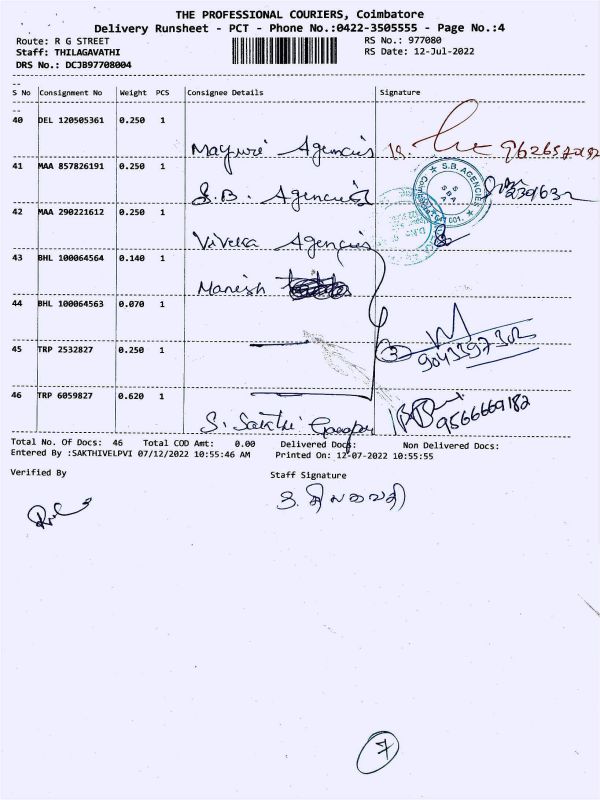 THE PROFESSIONAL COURIERS, Coimbatore
Delivery Runsheet - PCT - Phone No.:0422-3505555 - Page No.:4
Route: R G STREET RS No.: 977080
Staff: THILAGAVATHI RS Date: 12-Jul-2022
DRS No.: DCJB97708004
S No Consignment No Weight PCS Consignee Details Signature
40 DEL 120505361 0.250 1
Mayuri Agencies
41 MAA 857826191 0.250 1
S.B. Agencies S.B. AGENCIES
42 MAA 290221612 0.250 1
Vivekka Agencies
43 BHL 100064564 0.140 1
Manish
44 BHL 100064563 0.070 1
45 TRP 2532827 0.250 1
3 9043397302
46 TRP 6059827 0.620 1
S. Sakthi 9566669182
Total No. Of Docs: 46 Total COD Amt: 0.00 Delivered Docs: Non Delivered Docs:
Entered By :SAKTHIVELPVI 07/12/2022 10:55:46 AM Printed On: 12-07-2022 10:55:55
Verified By Staff Signature
7